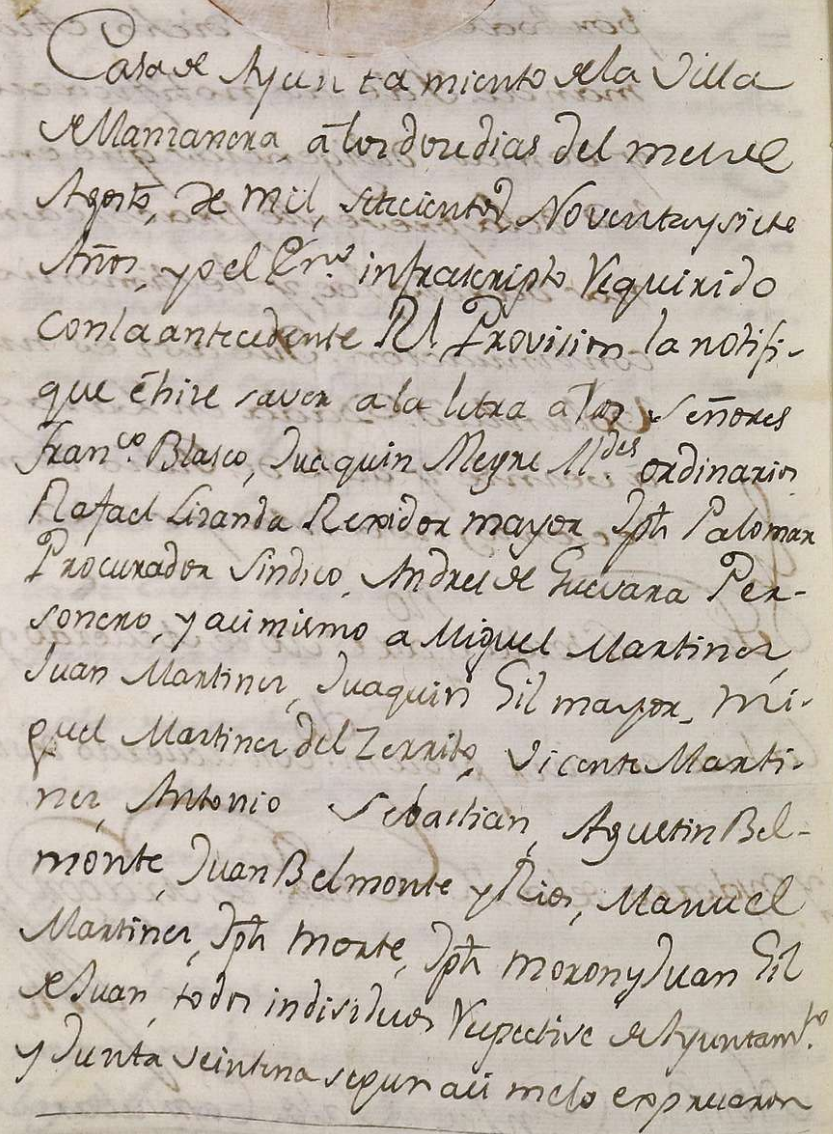 Casa de Ayuntamiento de la Villa
de Manzanera, a los doze dias del mes de
Agosto, de mil, setecientos Noventa y siete
Años, yo el Esno. infrascripto Requirido
con la antecedente Rl. Provision la notifi-
que é hize saver a la letra a los Señores
Franco. Blasco, Juaquin Meyne Alldes. ordinarios
Rafael Lizanda Rexidor mayor, Jph Palomar
Procurador Sindico, Andres de Guevara Per-
sonero, y asi mismo a Miguel Martinez,
Juan Martinez, Juaquin Gil mayor, Mi-
guel Martinez del Zerrito, Vicente Marti-
nez, Antonio Sebastian, Agustin Bel-
monte, Juan Belmonte y Rios, Manuel
Martinez, Jph Monte, Jph Moron y Juan Gil
de Juan, todos individuos Respective de Ayuntamto.
y Junta Veintena segun asi melo expresaron